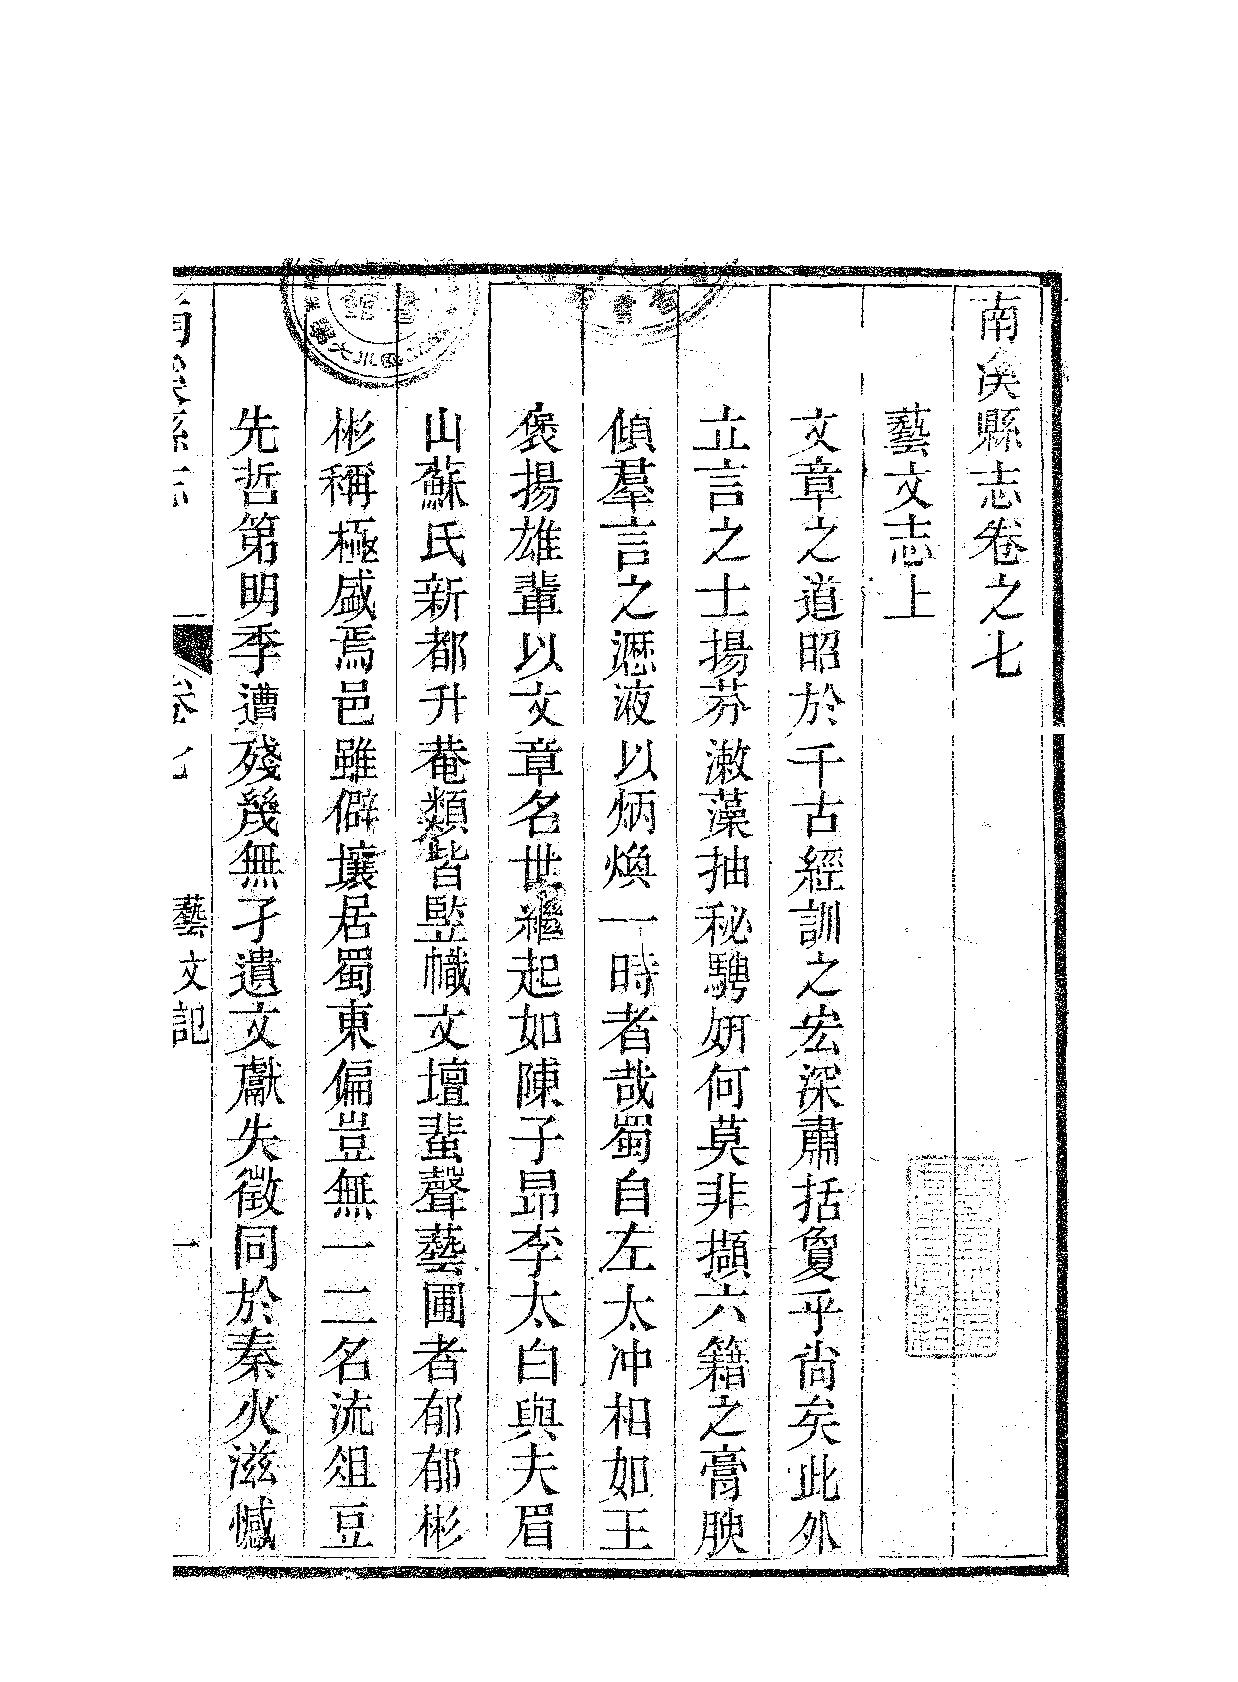 南溪縣志卷之七
藝文志上
文章之道昭於千古經訓之宏深肅括夐乎尚矣此外
立言之士揚芬漱藻抽秘騁妍何莫非擷六籍之膏腴
傾羣言之瀝液以炳煥一時者哉蜀自左太冲相如王
褒揚雄輩以文章名世繼起如陳子昂李太白與夫眉
山蘇氏新都升菴類皆豎幟文壇蜚聲藝圃者郁郁彬
彬稱極盛焉邑雖僻壤居蜀東偏豈無一二名流俎豆
先哲第明季遭殘幾無孑遺文獻失徵同於秦火滋憾
南溪縣志
卷七
藝文記
一